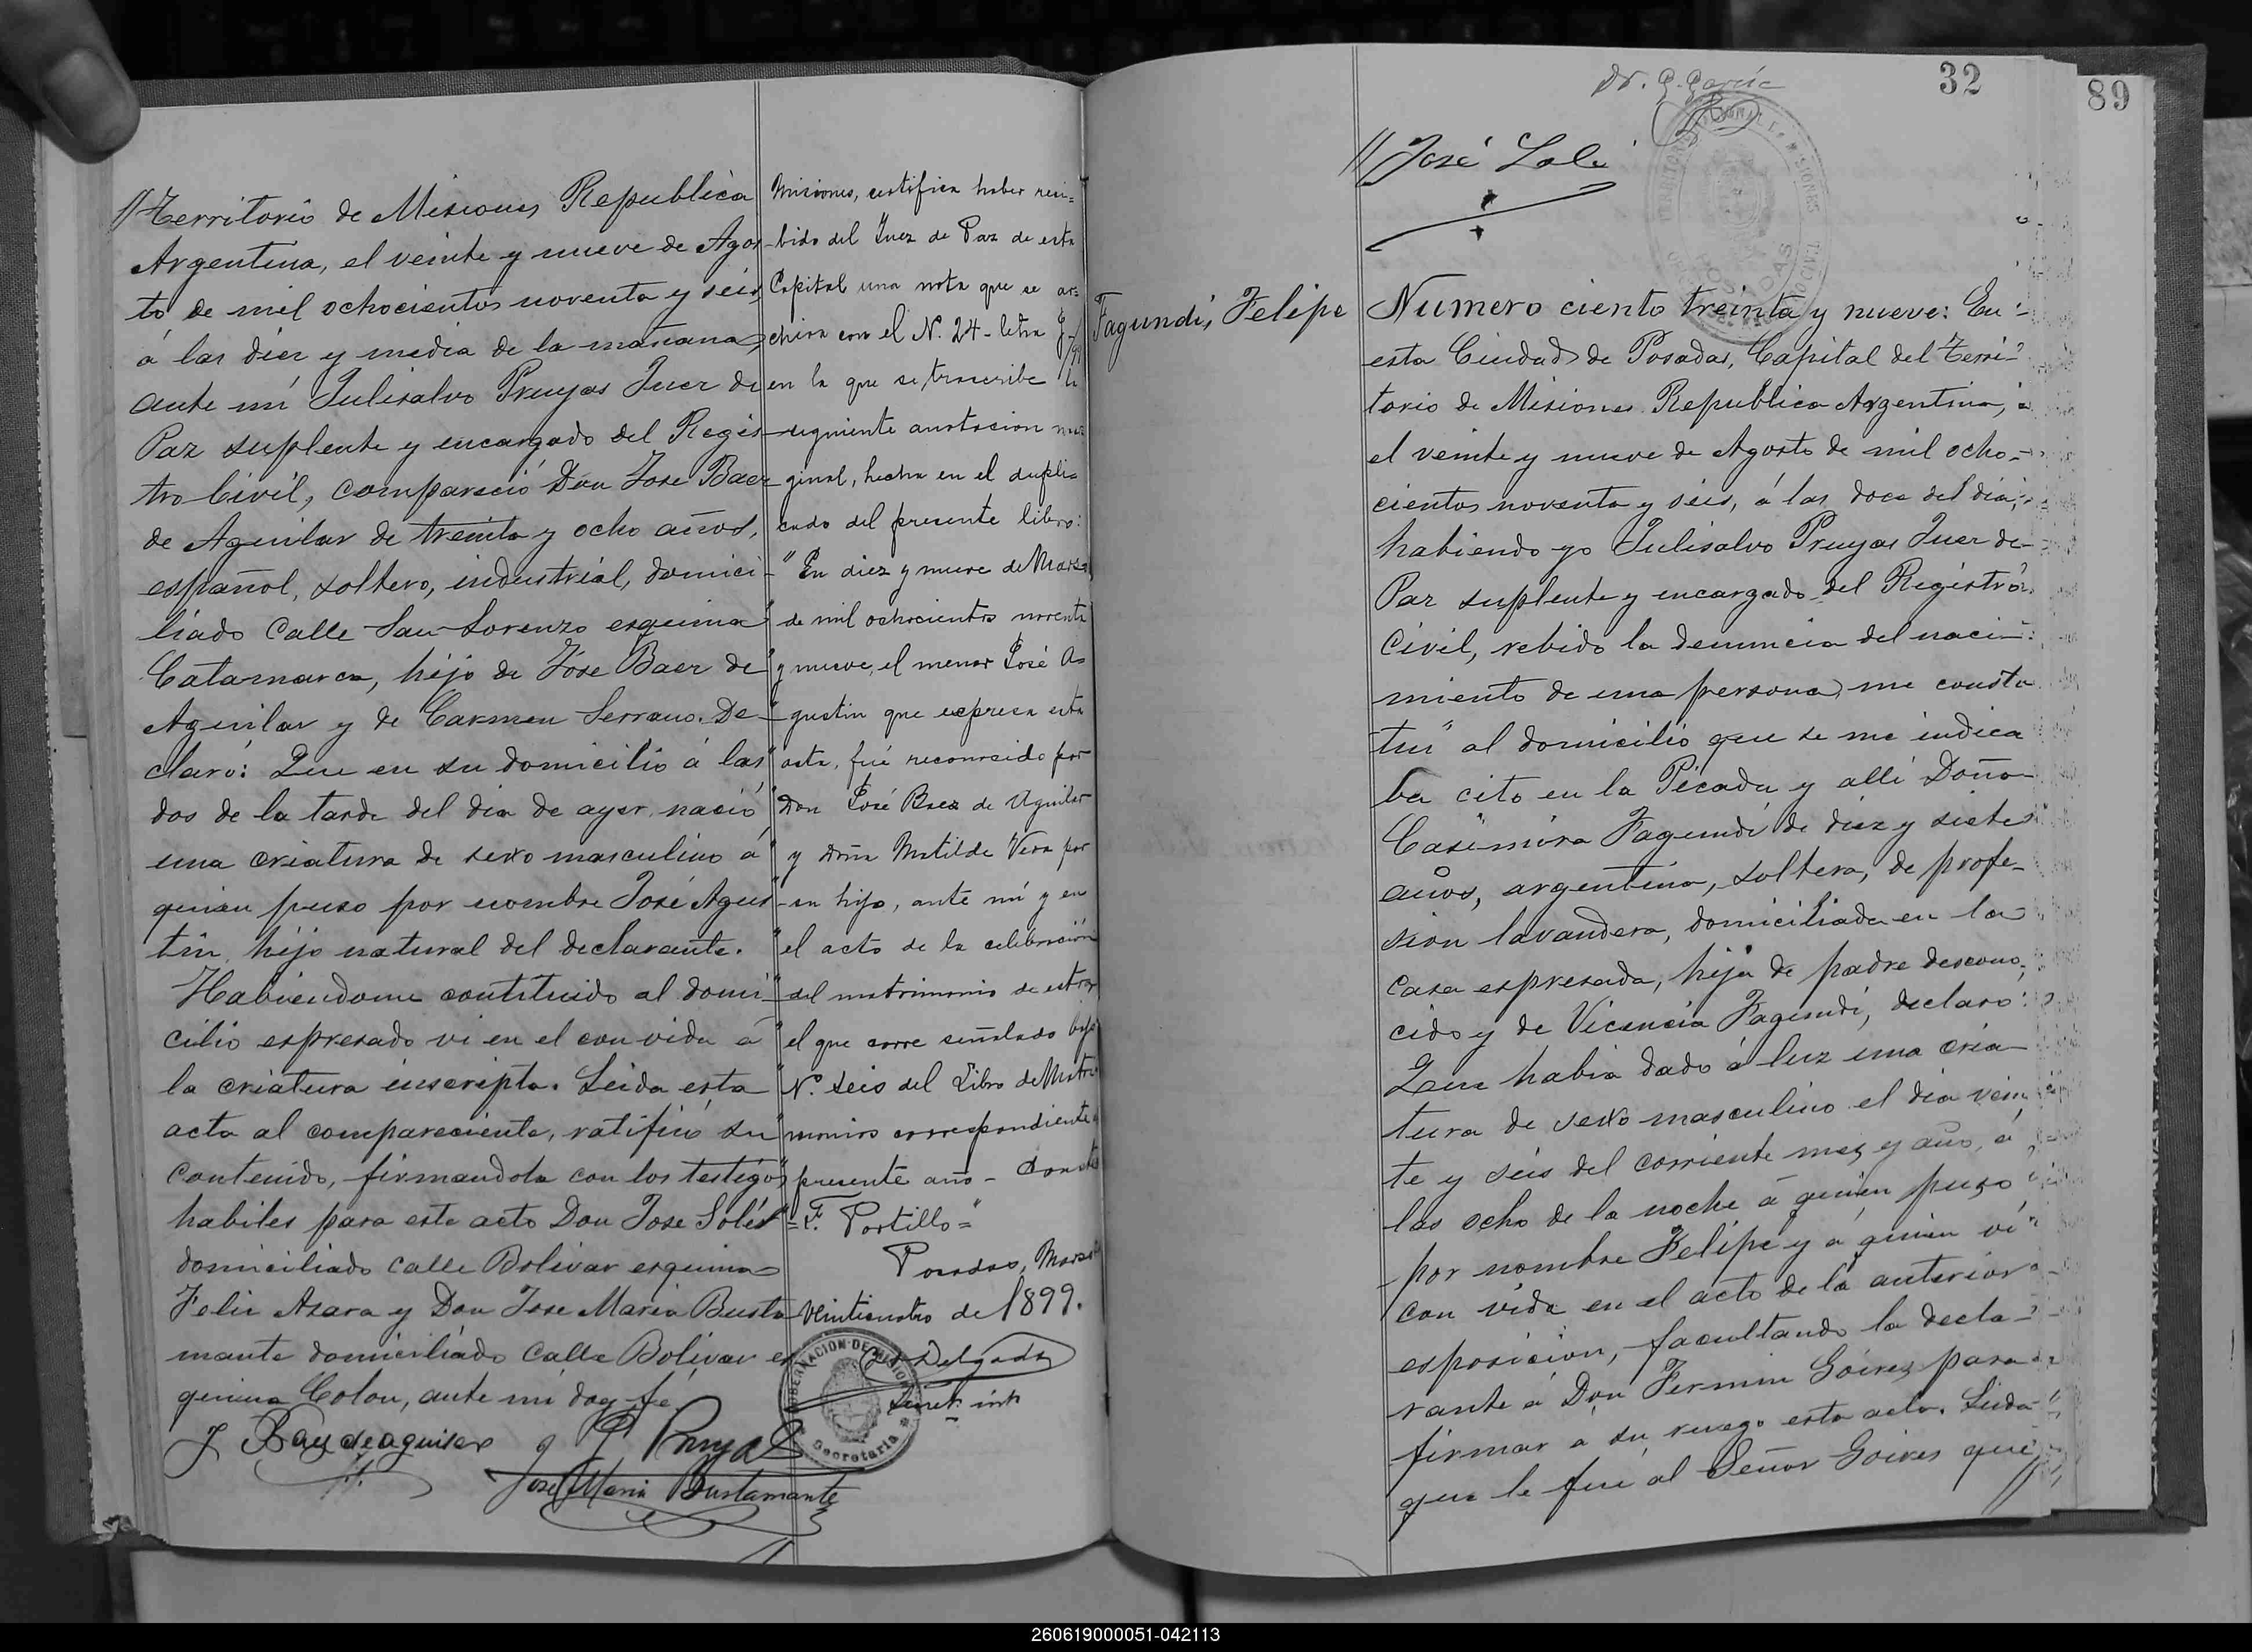 // Territorio de Misiones Republica
Argentina, el veinte y nueve de Agos
to de mil ochocientos noventa y seis
á las diez y media de la mañana,
ante mi Julisalvo Pruyas Juez de
Paz suplente y encargado del Regis
tro Civil, compareció Don Jose Baez
de Aguilar de treinta y ocho años,
español, soltero, industrial, domici
liado Calle San Lorenzo esquina
Catamarca, hijo de Jose Baez de
Aguilar y de Carmen Serrano. De
claró: Que en su domicilio á las
dos de la tarde del dia de ayer nació
una criatura de sexo masculino á
quien puso por nombre José Agus
tin, hijo natural del declarante.
Habiendome contituido al domi
cilio espresado vi en el con vida á
la criatura inscripta. Leida esta
acta al compareciente, ratificó su
contenido, firmandola con los testigos
habiles para este acto Don Jose Solés
domiciliado calle Bolivar esquina
Felix Azara y Don Jose Maria Busta
mante domiciliado Calle Bolivar es
quina Colon, ante mi doy fé
J Baez de aguilar
Pruyas
José Maria Bustamante
Misiones, certifica haber reci=
bido del Juez de Paz de esta
Capital una nota que se ar=
chiva con el N. 24 - letra J-
en la que se trascribe la
siguiente anotacion mar
ginal, hecha en el dupli=
cado del presente libro:
" En diez y nueve de Marzo
" de mil ochocientos noventa
" y nueve, el menor José A=
" gustin que expresa esta
" acta, fué reconocido por
" Don José Baez de Aguilar
" y Doña Matilde Vera por
" su hijo, ante mí y en
" el acto de la celebración
" del matrimonio de estos
" el que corre señalado bajo
" N.º seis del Libro de Matri
" monios correspondiente
" presente año -
= F. Portillo = "
Posadas, Marzo
veinticuatro de 1899.
Delgado
Secret. int.
GOBERNACION DE MISIONES
Secretaria
Dr. G. García
32
89
// José Solé
Fagundi, Felipe
Numero ciento treinta y nueve: En
esta Ciudad de Posadas, Capital del Terri
torio de Misiones Republica Argentina, á
el veinte y nueve de Agosto de mil ocho=
cientos noventa y seis, á las doce del dia,
habiendo yo Julisalvo Pruyas Juez de
Paz suplente y encargado del Registro
Civil, rebido la denuncia del naci
miento de una persona, me consta
tui al domicilio que se me indica
ba cito en la Picada y alli Doña
Casimira Fagundi de diez y siete
años, argentina, soltera, de profe
sion lavandera, domiciliada en la
casa espresada, hija de padre descono
cido y de Vicencia Fagundi, declaró:
Que habia dado á luz una cria
tura de sexo masculino el dia vein
te y seis del corriente mes y año, á
las ocho de la noche á quien puso
por nombre Felipe y á quien ví
con vida en el acto de la anterior
esposicion, facultando la decla
rante á Don Fermin Goires para
firmar a su ruego esta acta. Leida
que le fue al Señor Goires que //
260619000051-042113